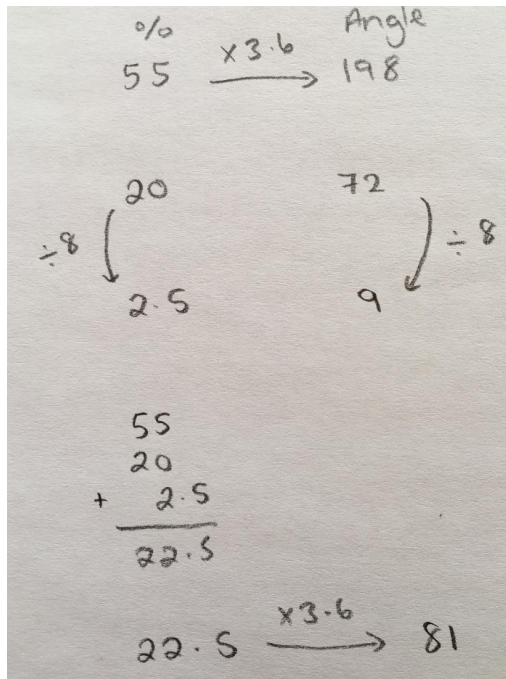 % Angle
55 ×3.6 198
20 72
÷8 ÷8
2.5 9
55
20
+ 2.5
22.5
22.5 ×3.6 81